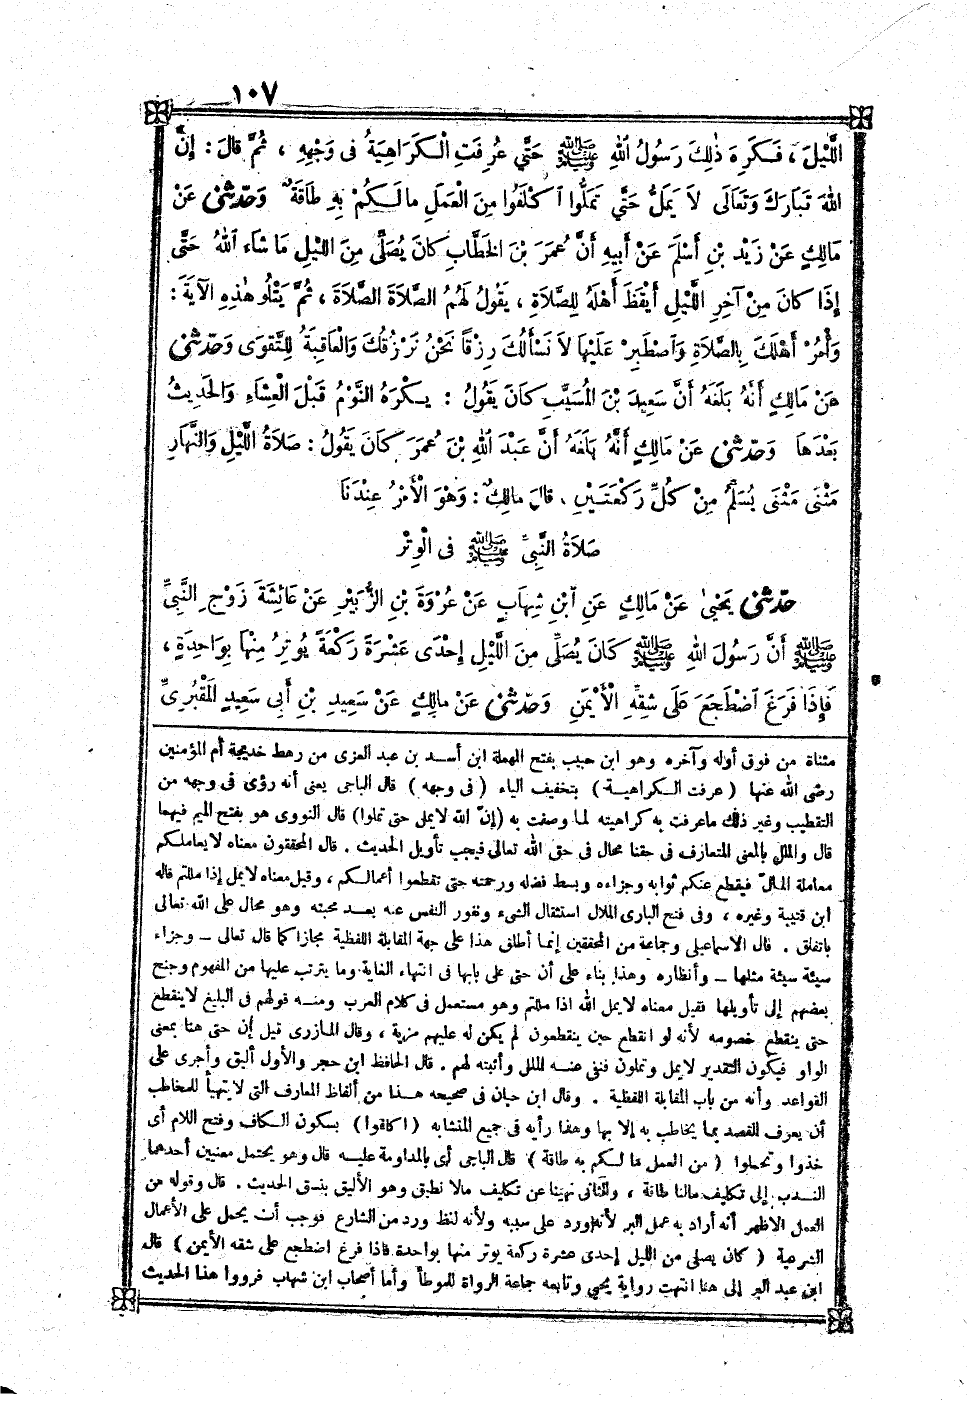 ١٠٧
اللَّيْلَ ، فَكَرِهَ ذٰلِكَ رَسُولُ اللهِ ﷺ حَتَّى عُرِفَتِ الْكَرَاهِيَةُ فِى وَجْهِهِ ، ثُمَّ قَالَ : إِنَّ
اللهَ تَبَارَكَ وَتَعَالَى لاَ يَمَلُّ حَتَّى تَمَلُّوا اكْلَفُوا مِنَ الْعَمَلِ مَا لَكُمْ بِهِ طَاقَةٌ وَحَدَّثَنِى عَنْ
مَالِكٍ عَنْ زَيْدِ بْنِ أَسْلَمَ عَنْ أَبِيهِ أَنَّ عُمَرَ بْنَ الخَطَّابِ كَانَ يُصَلِّى مِنَ اللَّيْلِ مَا شَاءَ اللهُ حَتَّى
إِذَا كَانَ مِنْ آخِرِ اللَّيْلِ أَيْقَظَ أَهْلَهُ لِلصَّلاَةِ ، يَقُولُ لَهُمُ الصَّلاَةَ الصَّلاَةَ ، ثُمَّ يَتْلُو هٰذِهِ الآيَةَ :
وَأْمُرْ أَهْلَكَ بِالصَّلاَةِ وَاصْطَبِرْ عَلَيْهَا لاَ نَسْأَلُكَ رِزْقًا نَحْنُ نَرْزُقُكَ وَالْعَاقِبَةُ لِلتَّقْوَى وَحَدَّثَنِى
عَنْ مَالِكٍ أَنَّهُ بَلَغَهُ أَنَّ سَعِيدَ بْنَ المُسَيَّبِ كَانَ يَقُولُ : يُكْرَهُ النَّوْمُ قَبْلَ الْعِشَاءِ وَالحَدِيثُ
بَعْدَهَا وَحَدَّثَنِى عَنْ مَالِكٍ أَنَّهُ بَلَغَهُ أَنَّ عَبْدَ اللهِ بْنَ عُمَرَ كَانَ يَقُولُ : صَلاَةُ اللَّيْلِ وَالنَّهَارِ
مَثْنَى مَثْنَى يُسَلِّمُ مِنْ كُلِّ رَكْعَتَيْنِ ، قَالَ مَالِكٌ : وَهُوَ الْأَمْرُ عِنْدَنَا
صَلاَةُ النَّبِىِّ ﷺ فِى الْوِتْرِ
حَدَّثَنِى يَحْيىٰ عَنْ مَالِكٍ عَنِ ابْنِ شِهَابٍ عَنْ عُرْوَةَ بْنِ الزُّبَيْرِ عَنْ عَائِشَةَ زَوْجِ النَّبِىِّ
ﷺ أَنَّ رَسُولَ اللهِ ﷺ كَانَ يُصَلِّى مِنَ اللَّيْلِ إِحْدَى عَشْرَةَ رَكْعَةً يُوتِرُ مِنْهَا بِوَاحِدَةٍ ،
فَإِذَا فَرَغَ اضْطَجَعَ عَلَى شِقِّهِ الْأَيْمَنِ وَحَدَّثَنِى عَنْ مَالِكٍ عَنْ سَعِيدِ بْنِ أَبِى سَعِيدٍ المَقْبُرِىِّ
مثناة من فوق أوله وآخره وهو ابن حبيب بفتح المهملة ابن أسد بن عبد العزى من رهط خديجة أم المؤمنين
رضى الله عنها ( عرفت الكراهية ) بتخفيف الياء ( فى وجهه ) قال الباجى يعنى أنه رؤى فى وجهه من
التقطيب وغير ذلك ما عرفت به كراهيته لما وصفت به (إنّ الله لايمل حتى تملوا) قال النووى هو بفتح الميم فيهما
قال والملل بالمعنى المتعارف فى حقنا محال فى حق الله تعالى فيجب تأويل الحديث . قال المحققون معناه لايعاملكم
معاملة المالّ فيقطع عنكم ثوابه وجزاءه وبسط فضله ورحمته حتى تقطعوا أعمالكم ، وقيل معناه لايمل إذا مللتم قاله
ابن قتيبة وغيره ، وفى فتح البارى الملال استثقال الشىء ونفور النفس عنه بعد محبته وهو محال على الله تعالى
باتفاق . قال الاسماعيلى وجماعة من المحققين إنما أطلق هذا على جهة المقابلة اللفظية مجازا كما قال تعالى _ وجزاء
سيئة سيئة مثلها _ وأنظاره وهذا بناء على أن حتى على بابها فى انتهاء الغاية وما يترتب عليها من المفهوم وجنح
بعضهم إلى تأويلها فقيل معناه لايمل الله اذا مللتم وهو مستعمل فى كلام العرب ومنه قولهم فى البليغ لاينقطع
حتى ينقطع خصومه لأنه لو انقطع حين ينقطعون لم يكن له عليهم مزية ، وقال المازرى قيل إن حتى هنا بمعنى
الواو فيكون التقدير لايمل وتملون فنفى عنه الملل وأثبته لهم . قال الحافظ ابن حجر والأول أليق وأجرى على
القواعد وأنه من باب المقابلة اللفظية . وقال ابن حبان فى صحيحه هذا من ألفاظ المعارف التى لايتهيأ للمخاطب
أن يعرف القصد بما يخاطب به إلا بها وهذا رأيه فى جميع المتشابه ( اكلفوا ) بسكون الكاف وفتح اللام أى
خذوا وتحملوا ( من العمل مالكم به طاقة ) قال الباجى أى بالمداومة عليه قال وهو يحتمل معنيين أحدهما
الندب إلى تكليف مالنا طاقة ، والثانى نهينا عن تكليف مالا نطيق وهو الأليق بنسق الحديث . قال وقوله من
العمل الاظهر أنه أراد به عمل البر لأنه ورد على سببه ولأنه لفظ ورد من الشارع فوجب أن يحمل على الأعمال
الشرعية ( كان يصلى من الليل إحدى عشرة ركعة يوتر منها بواحدة فاذا فرغ اضطجع على شقه الأيمن ) قال
ابن عبد البر إلى هنا انتهت رواية يحيى وتابعه جماعة الرواة للموطأ وأما أصحاب ابن شهاب فرووا هذا الحديث